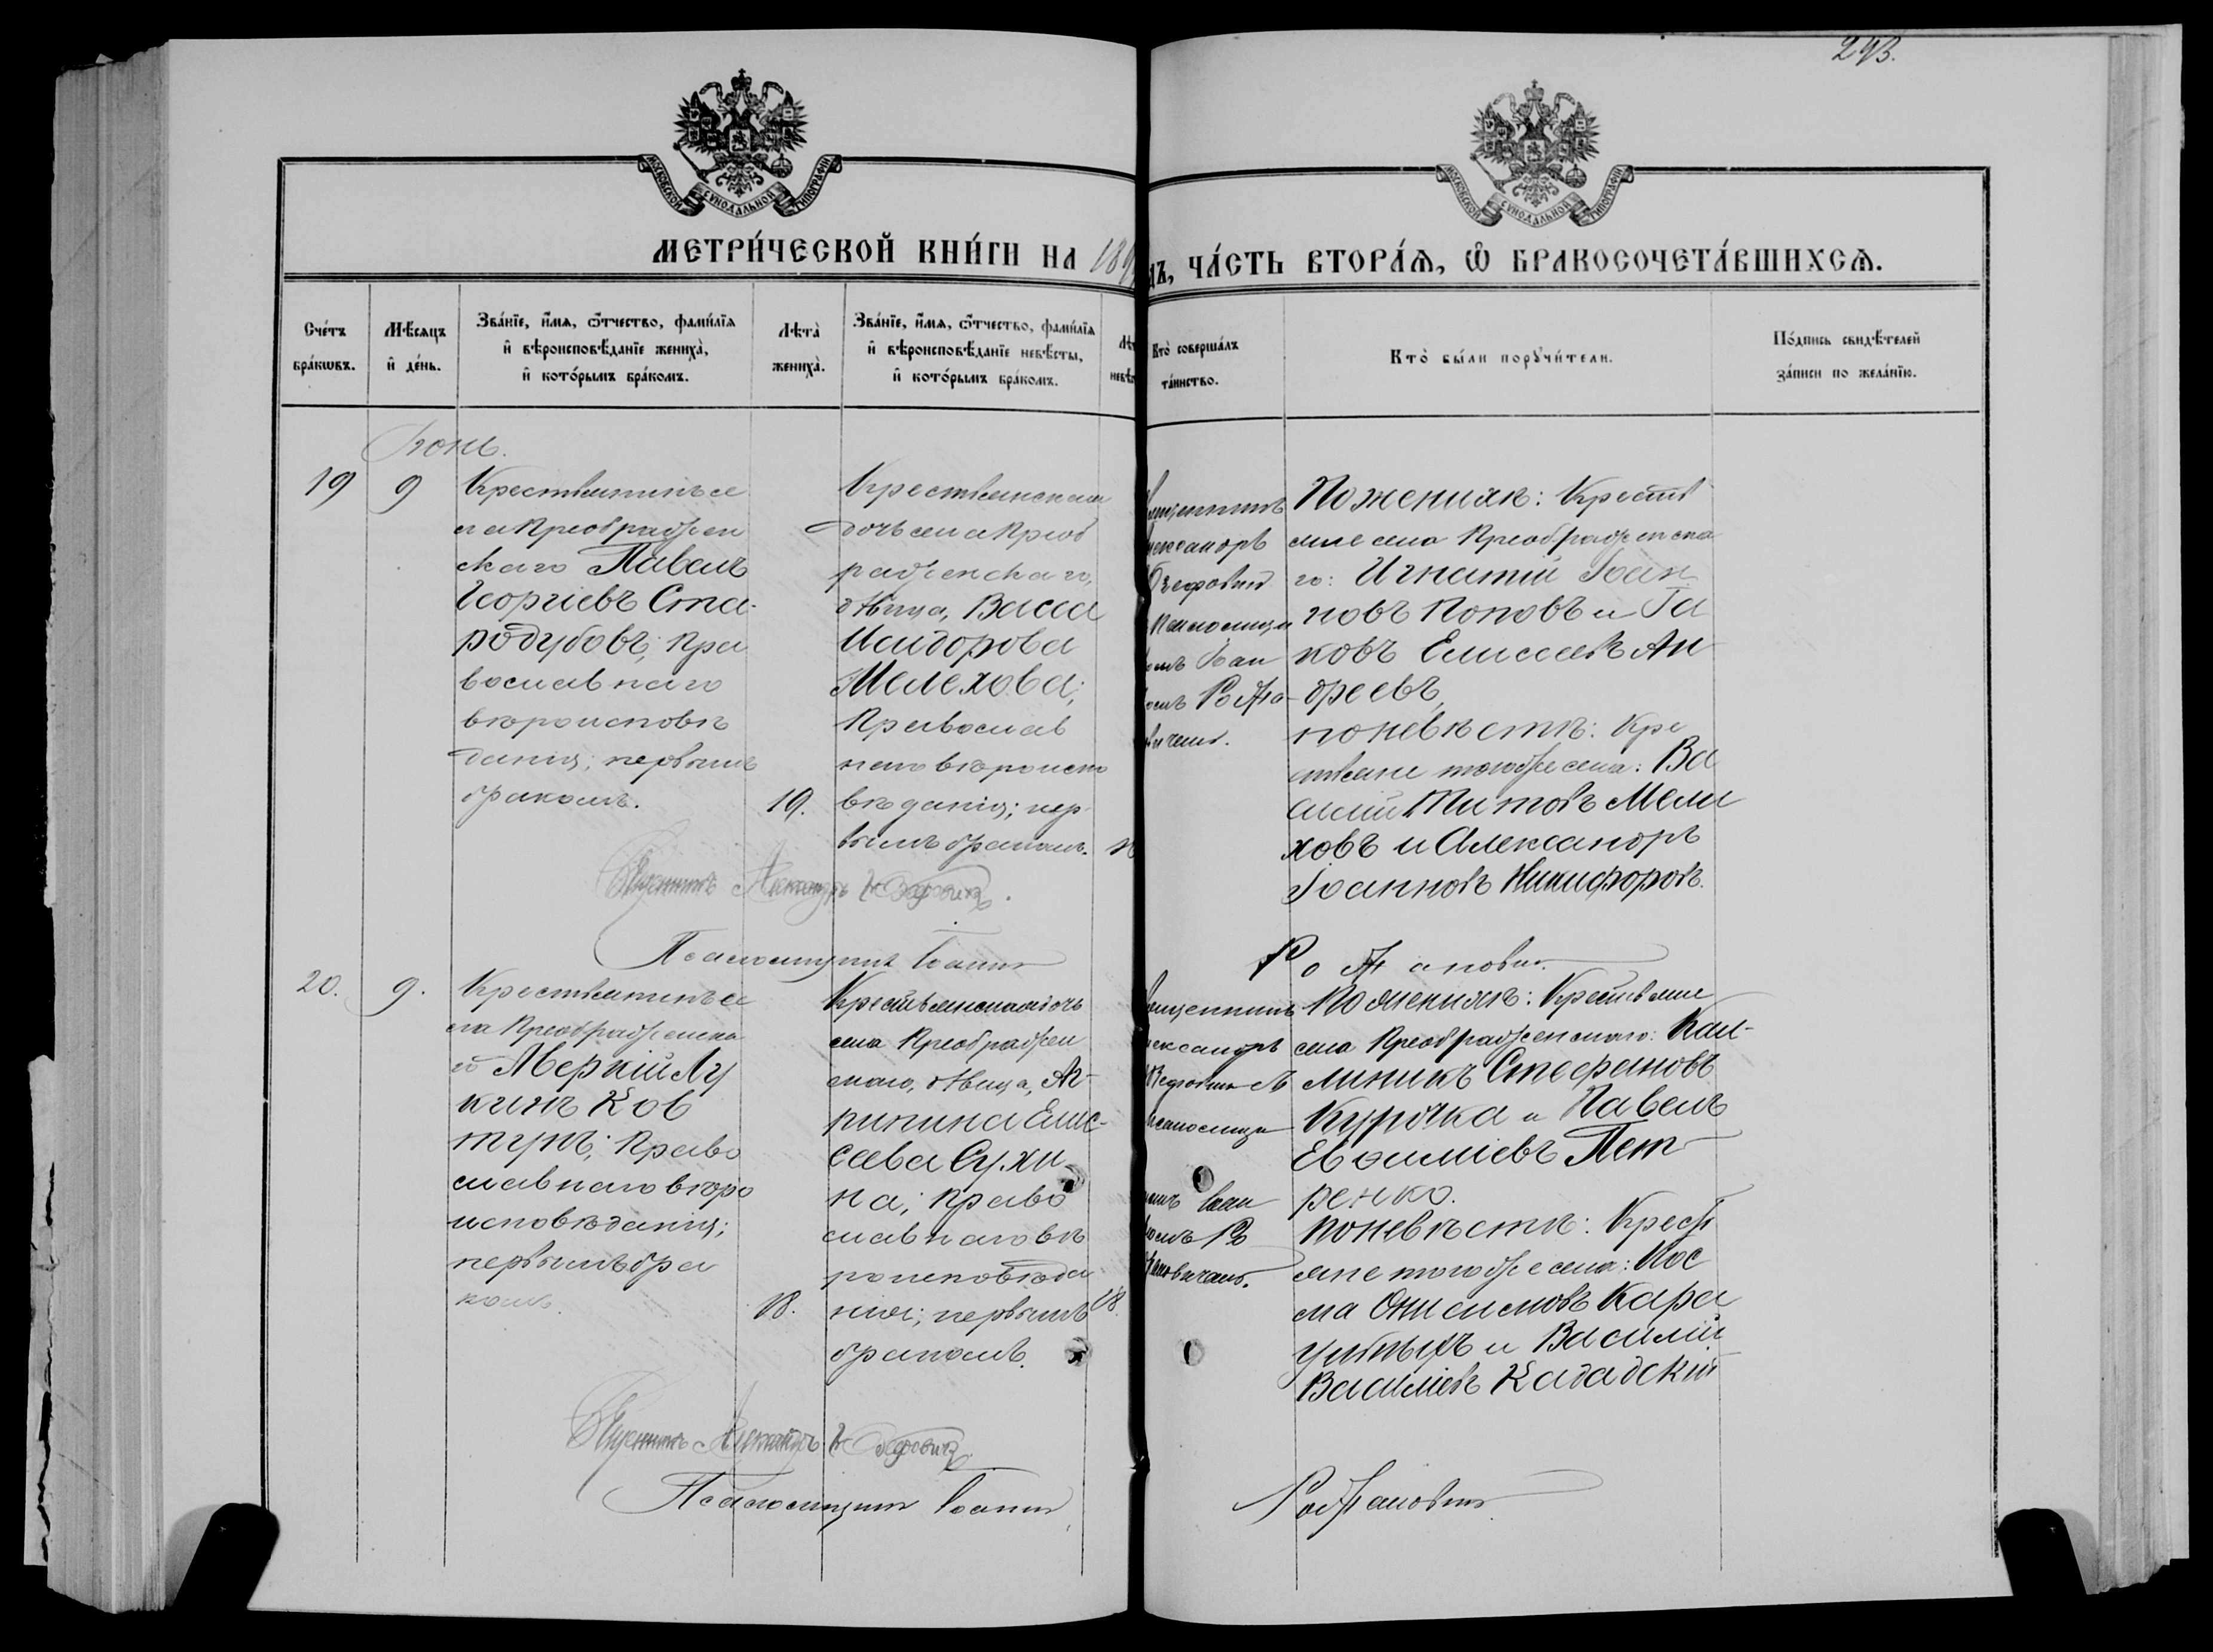 293.
МОСКОВСКОЙ СѴНОДАЛЬНОЙ ТИПОГРАФІИ
МОСКОВСКОЙ СѴНОДАЛЬНОЙ ТИПОГРАФІИ
МЕТРИ́ЧЕСКОЙ КНИ́ГИ НА 189
ДЪ, ЧА́СТЬ ВТОРА́Ѧ, Ѽ БРАКОСОЧЕТА́ВШИХСѦ.
Сче́тъ
бра́кѡвъ.
Мѣ́сѧцъ
и҆ де́нь.
Зва́нїе, и҆́мѧ, ѻ҆́тчество, фами́лїѧ
и҆ вѣроисповѣ́данїе жениха̀,
и҆ кото́рымъ бра́комъ.
Лѣта̀
жениха̀.
Зва́нїе, и҆́мѧ, ѻ҆́тчество, фами́лїѧ
и҆ вѣроисповѣ́данїе невѣ́сты,
и҆ кото́рымъ бра́комъ.
Лѣт
невѣс
Кто̀ соверша́лъ
та́инство.
Кто̀ бы́ли порꙋчи́тели.
По́дпись свидѣ́телей
за́писи по жела́нїю.
Іюнь.
19
9
Крестьянинъ се
ла Преображен
скаго Павелъ
Георгіевъ Ста-
родубовъ; пра
вославнаго
вѣроисповѣ
данія; первымъ
бракомъ.
19.
Крестьянская
дочь села Преоб
раженскаго,
дѣвица, Васса
Исидорова
Мелехова;
Православ
наго вѣроиспо
вѣданія; пер-
вымъ бракомъ.
вященникъ
лександръ
Псаломщи
омъ Іоан
омъ Рожа-
вичемъ.
По женихѣ: Крестья
не села Преображенска
го: Игнатій Іоан
новъ Поповъ и Іа
ковъ Елисеевъ Ан
дреевъ,
по невѣстѣ: Кре
стьяне тогоже села: Ва
силій Титовъ Меле
ховъ и Александръ
Іоанновъ Никифоровъ.
Священникъ Александръ
Псаломщикъ Іоаннъ Рожановичъ
20.
9.
Крестьянинъ се
ла Преображенска
го Аверкій Лу
кинъ Ков
тунъ; Право
славнаго вѣро
исповѣданія;
первымъ бра
комъ.
18.
Крестьянская дочь
села Преображен
скаго, дѣвица, Аг-
рипина Елис-
еева Сухи
на; право
славнаго вѣ
роисповѣда
нія; первымъ
бракомъ.
18.
вященникъ
лександръ
псаломщи
омъ Іоан
номъ Ро
жановичемъ.
По женихѣ: Крестьяне
села Преображенскаго: Кал-
линикъ Стефановъ
Курочка и Павелъ
Евѳиміевъ Пет
ренко.
По невѣстѣ: Крест
яне тогоже села: Кос
ма Онисимовъ Кара
и Василій
Васильевъ Кададскій
Священникъ Александръ
Псаломщикъ Іоаннъ Рожановичъ.